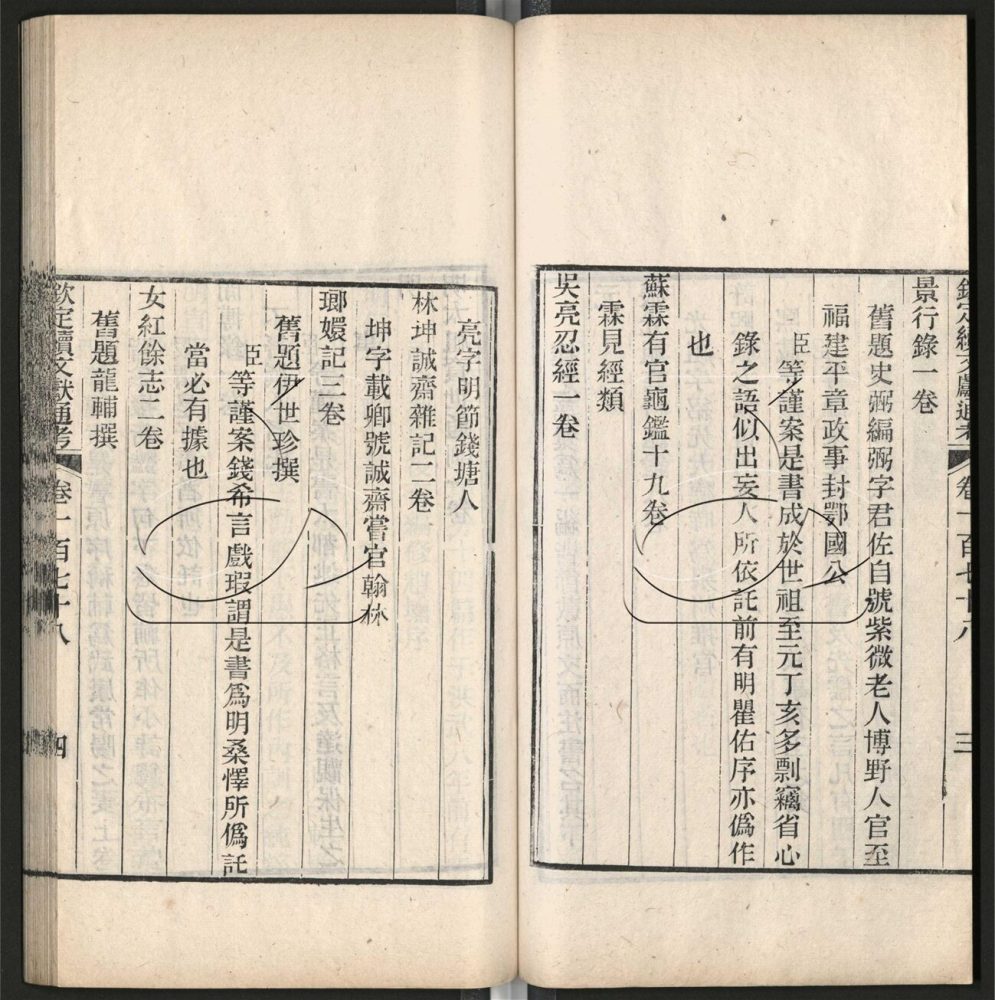 欽定續文獻通考 卷一百七十八 三
景行錄一卷
舊題史弼編弼字君佐自號紫微老人博野人官至
福建平章政事封鄂國公
臣等謹案是書成於世祖至元丁亥多剽竊省心
錄之語似出妄人所依託前有明瞿佑序亦僞作
也
蘇霖有官龜鑑十九卷
霖見經類
吳亮忍經一卷
亮字明節錢塘人
林坤誠齋雜記二卷
坤字載卿號誠齋嘗官翰林
瑯嬛記三卷
舊題伊世珍撰
臣等謹案錢希言戲瑕謂是書爲明桑懌所僞託
當必有據也
女紅餘志二卷
舊題龍輔撰
欽定續文獻通考 卷一百七十八 四